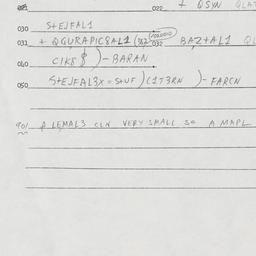 020 + QSYN QLAT
030 S+EJFAL1
032 + QGURAPIC8AL1 (362 032 BAZ+AL1 QL
040 CIK8 $ )-BARAN.
050 S+EJFAL3X = S+UF ) (1T3RN )-FARCN
901 A LEMAL3 CLN VERY SMALL SO A MAPL